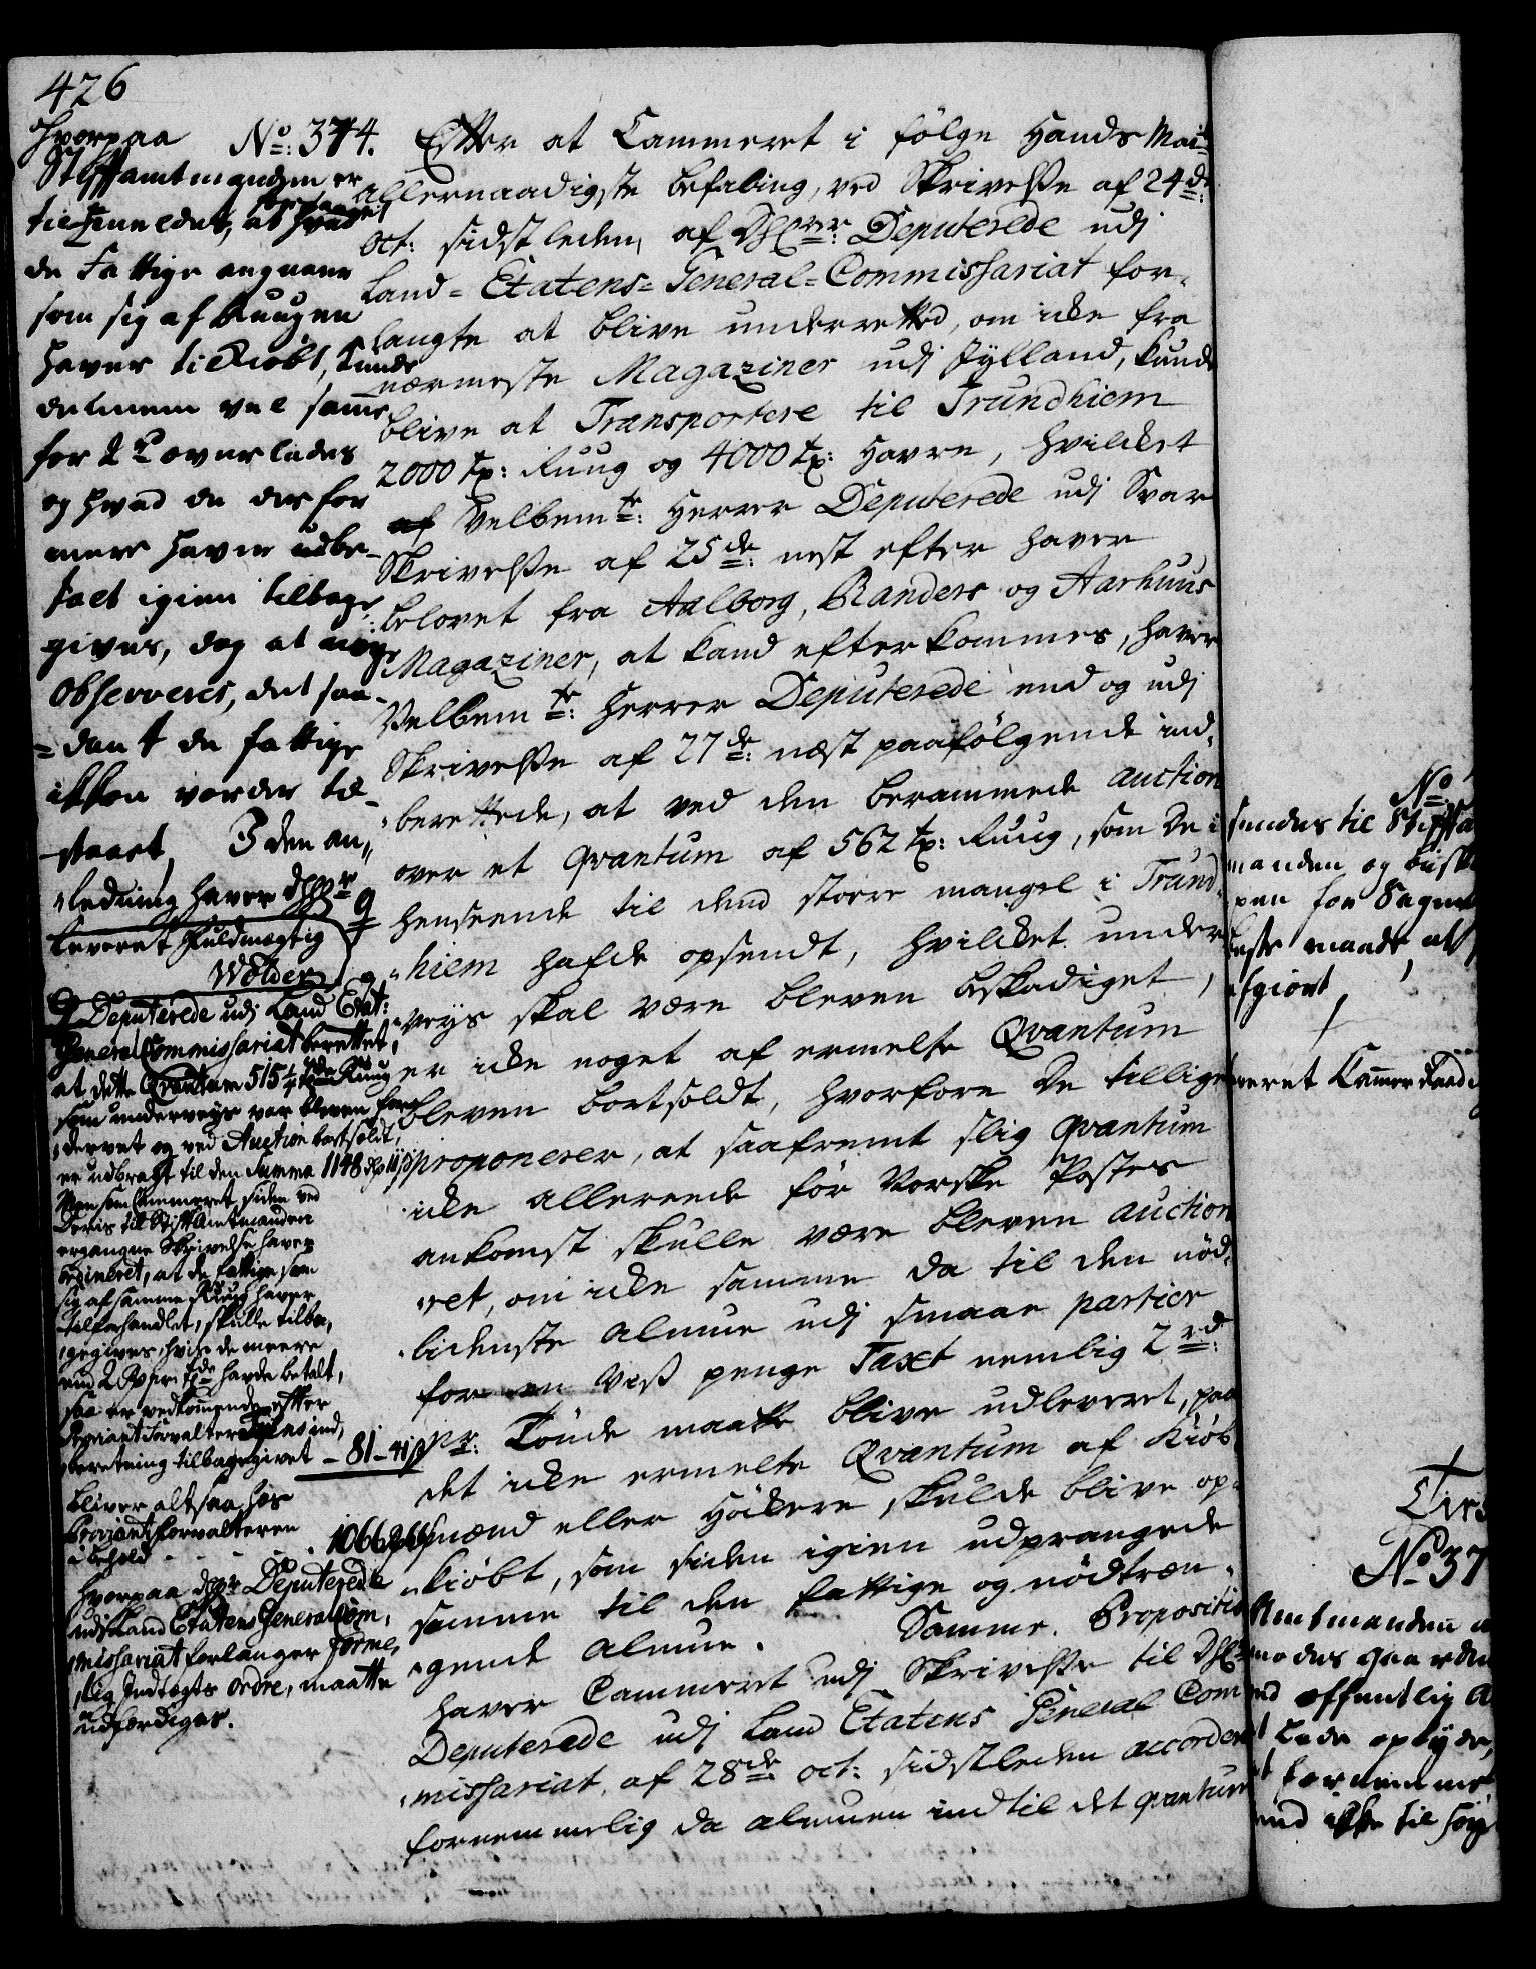 426
No: 374.
Hvorpaa
Stiftamtmanden er
tilmeldet, at hvad
de Fattige angaaer
som sig af Ruugen
haver tilkiøbt, kunde
dennem vel samme
for 2 rd overlades
og hvad de derfor
meere haver udbe-
talt igien tilbage
gives, dog at nøye
Observeres, det saa-
dant de fattige
ikkon vorder til-
staaet, I den an-
ledning haver
leveret Fuldmægtig
Wölder
Deputerede udj Land Etat:
General Commissariat berettet,
at dette Qvantum 515 1/4 tdr Ruug
som underveys var bleven for-
dervet og ved Auction bortsoldt,
er udbragt til den Summa 1148
Men som Cammeret siden ved
Deris til Stiftamtmanden
ergangne Skrivelse haver
ordineret, at de fattige, som
sig af samme Ruug haver
tilforhandlet, skulle tilba-
gegives, hvis de meere
end 2 Rdr pr: tde havde betalt,
saa er vedkommende efter
Proviantforvalter ind-
beretning tilbagegivet - 81 - 41 ß
bliver altsaa hos
Proviantforvalteren
i behold - - - 1066
Hvorpaa Deputerede
udj Land Etatens General Com-
missariat forlanger forme-
lig Indtægts Ordre, maatte
udfærdiges.
Efter at Cammeret i følge Hands Mai:
allernaadigste befaling, ved Skrivelse af 24de
Oct: sidstleden, af Deputerede udj
Land-Etatens-General-Commissariat for-
langte at blive underretted, om icke fra
nærmeste Magaziner udj Jylland, kunde
blive at Transportere til Trundhiem
2000 tr: Ruug og 4000 tr: Havre, hvilcket
af Velbemte: Herrer Deputerede udj Svar
Skrivelse af 25de: nest efter haver
belovet fra Aalborg, Randers og Aarhuus
Magaziner, at kand efterkommes, haver
Velbemte: Herrer Deputerede end og udj
Skrivelse af 27de: næst paafølgende ind-
berettede, at ved den berammede auction
over et Qvantum af 562 tr: Ruug, som De i
henseende til dend store mangel i Trund-
hiem hafde opsendt, hvilcket under
veys skal være bleven beskadiget,
er icke noget af ermelte Qvantum
bleven bortsoldt, hvorfore De tillige
proponerer, at saafremt slig Qvantum
icke allereede før Norske Postes
ankomst skulle være bleven auction
ret, om icke samme da til den nød-
lidenste almue udj smaae partier
for en viß penge Taxt nemlig 2 rd:
pr: Tønde maatte blive udleveret, paa
det icke ermelte Qvantum af Kiøb-
mænd eller Høckere skulde blive op-
kiøbt, som siden igien udprangede
samme til den fattige og nødtræn-
gende almue. Samme Propositio
haver Cammeret udj Skrivelse til
Deputerede udj Land Etatens General Com
missariat, af 28de: Oct: sidstleden accorderet
fornemmelig da almuen indtil det qvantum
No
sendes til Stiffta
manden og bisko
pen for
beste maade, at
afgiort
leveret Cammer Raad
Tirs
No 37
Amtmanden
modes gaarden
ved offentlig A
lade opbyde,
fornemme
end ikke til høy